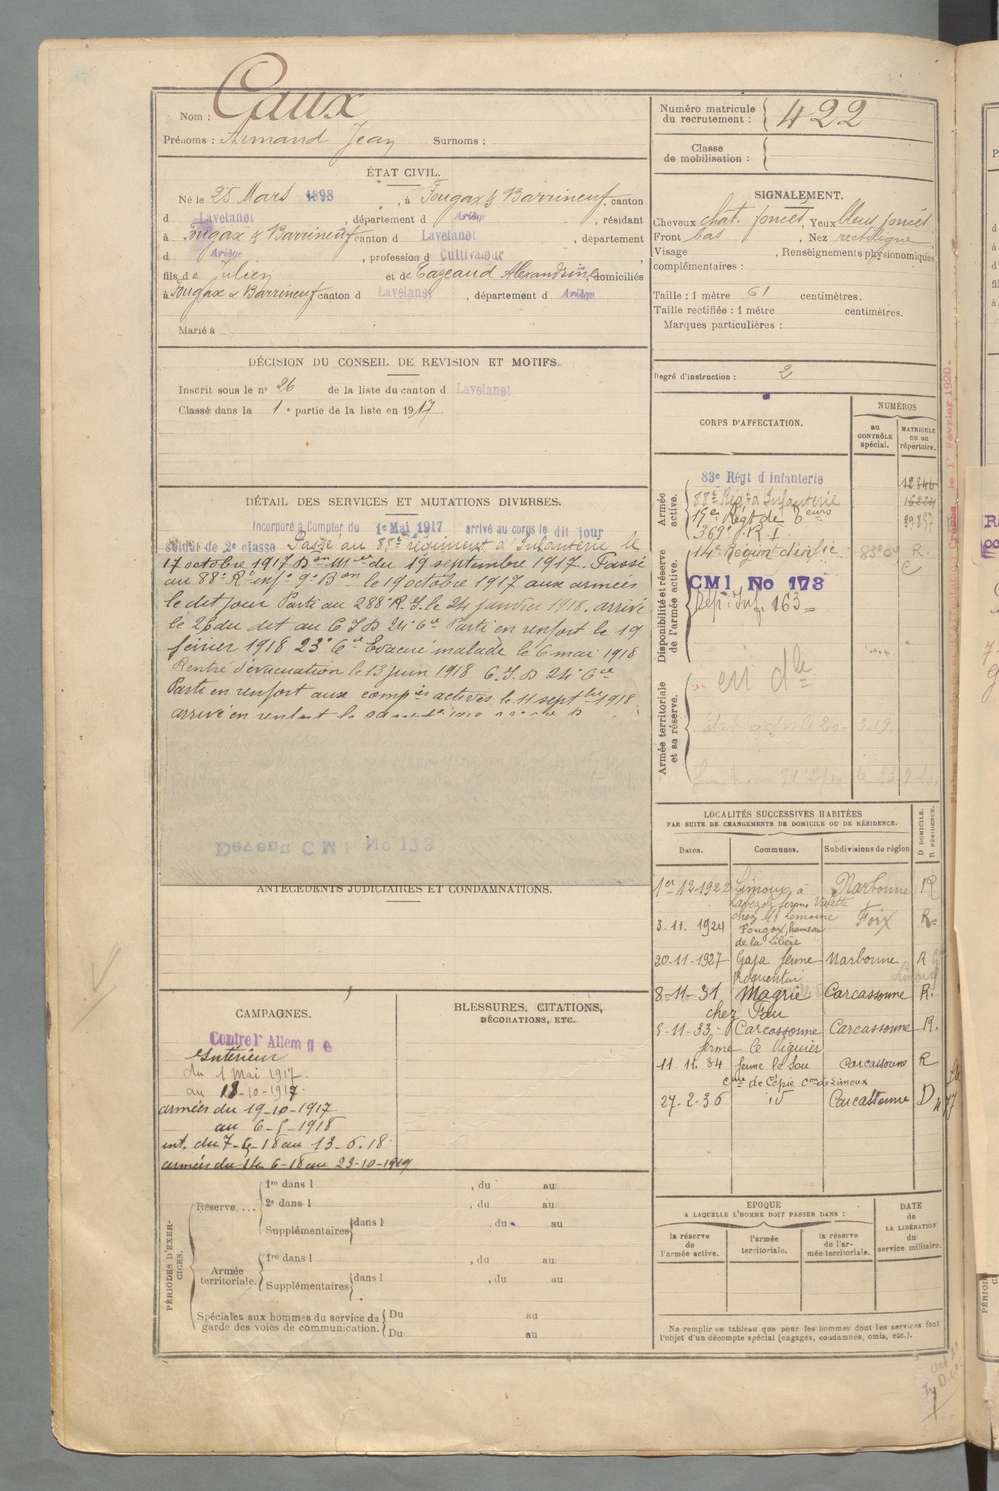 Nom : Caux
Prénoms : Armand Jean Surnoms :
ÉTAT CIVIL.
Né le 25 Mars 1898, à Fougax & Barrineuf, canton
d Lavelanet, département d Ariège, résidant
à Fougax & Barrineuf canton d Lavelanet, département
d Ariège, profession d Cultivateur
fils de Julien et de Cazeaud Alexandrine domiciliés
à Fougax & Barrineuf canton d Lavelanet, département d Ariège
Marié à
DÉCISION DU CONSEIL DE REVISION ET MOTIFS.
Inscrit sous le n° 26 de la liste du canton d Lavelanet
Classé dans la 1e partie de la liste en 1917.
DÉTAIL DES SERVICES ET MUTATIONS DIVERSES.
Incorporé à Compter du 1e Mai 1917 arrivé au corps le dit jour
soldat de 2e classe Passé au 88e régiment d'Infanterie le
17 octobre 1917 Don Mlle du 19 septembre 1917. Passé
au 88e R inf 9e Bon le 19 octobre 1917 aux armées
le dit jour Parti au 288e R.I. le 24 janvier 1918. arrivé
le 26 du dit au C I D 24e Cie Parti en renfort le 19
février 1918 23e Cie Evacué malade le 6 mai 1918
Rentré d'évacuation le 13 juin 1918 C.I.D 24e Cie
Parti en renfort aux compies actives le 11 septbre 1918.
arrivé en renfort le
Devenu CMI No 173
ANTÉCÉDENTS JUDICIAIRES ET CONDAMNATIONS.
CAMPAGNES.
Contre l'Allemagne
Intérieur
du 1 Mai 1917.
au 18-10-1917
armées du 19-10-1917
au 6-5-1918
int. du 7-5-18 au 13-6-18
armées du 14-6-18 au 23-10-1919
BLESSURES, CITATIONS,
DÉCORATIONS, ETC.
PÉRIODES D'EXERCICES.
Réserve....
1re dans l , du au
2e dans l , du au
Supplémentaires dans l , du au
Armée territoriale.
1re dans l , du au
Supplémentaires dans l , du au
Spéciales aux hommes du service de garde des voies de communication.
Du au
Du au
Numéro matricule du recrutement : 422
Classe de mobilisation :
SIGNALEMENT.
Cheveux chat. foncés, Yeux bleus foncés
Front bas, Nez rectiligne
Visage , Renseignements physionomiques
complémentaires :
Taille : 1 mètre 61 centimètres.
Taille rectifiée : 1 mètre centimètres.
Marques particulières :
Degré d'instruction : 2
CORPS D'AFFECTATION.
NUMÉROS
au CONTRÔLE spécial.
MATRICULE ou au répertoire.
Armée active.
83e Régt d Infanterie
12846
88e Régt d'Infanterie
16224
369e R.I.
Disponibilité et réserve de l'armée active.
14e Région divfie
CMI No 173
Dépt Inf. 163
Armée territoriale et sa réserve.
en dle
LOCALITÉS SUCCESSIVES HABITÉES
PAR SUITE DE CHANGEMENTS DE DOMICILE OU DE RÉSIDENCE.
Dates. Communes. Subdivisions de région D DOMICILE. R RÉSIDENCE.
1er 12-1922 Limoux, à Narbonne R
ferme Valette
chez M. Lemoine
3.11.1924 Fougax, hameau Foix R.
de la Lilière
20-11-1927 Gaja ferme Narbonne R
Roquentin
8-11-31 Magrie Carcassonne R.
chez Fau
5-11-33 Carcassonne Carcassonne R.
ferme le Viguier
11.11.34 ferme le Sou Carcassonne R
cne de Cépie con de Limoux
27.2-36 id Carcassonne D
EPOQUE
A LAQUELLE L'HOMME DOIT PASSER DANS :
la réserve de l'armée active.
l'armée territoriale.
la réserve de l'armée territoriale.
DATE de LA LIBÉRATION du service militaire.
Ne remplir ce tableau que pour les hommes dont les services font
l'objet d'un décompte spécial (engagés, condamnés, omis, etc.).